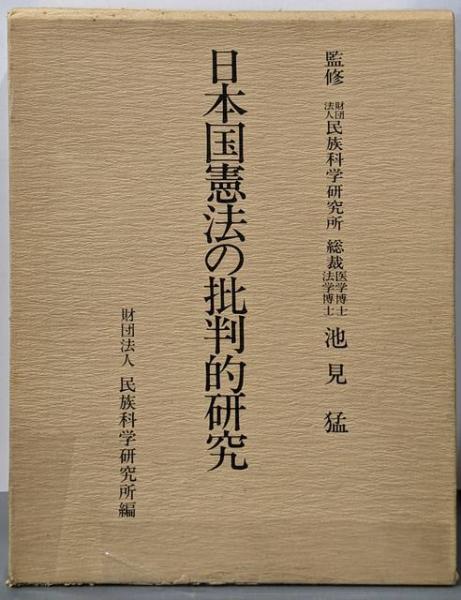 監修 財団法人民族科学研究所 総裁 医学博士法学博士 池見猛
日本国憲法の批判的研究
財団法人 民族科学研究所編